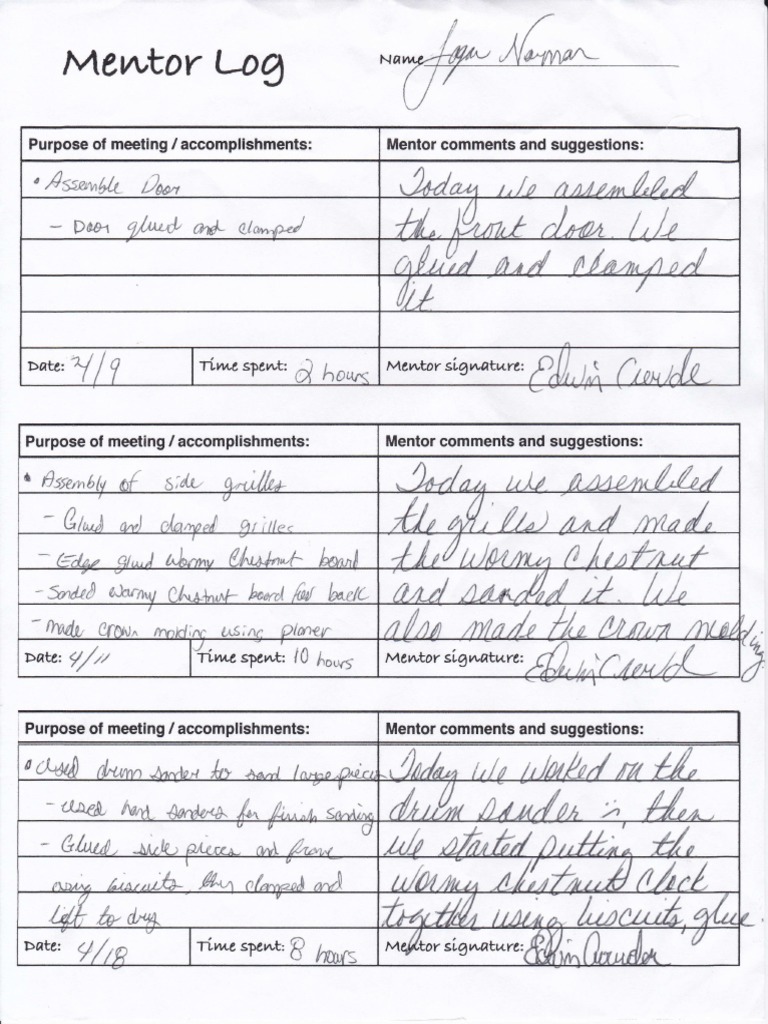 Mentor Log
Name Logan Norman
Purpose of meeting / accomplishments:
Mentor comments and suggestions:
• Assemble Door
- Door glued and clamped
Today we assembled
the front door. We
glued and clamped
it.
Date: 4/9
Time spent: 2 hours
Mentor signature: Edwin
Purpose of meeting / accomplishments:
Mentor comments and suggestions:
• Assembly of side grilles
- Glued and clamped grilles
- Edge glued Wormy Chestnut board
- Sanded Wormy Chestnut board for back
- made crown molding using planer
Today we assembled
the grills and made
the wormy chestnut
and sanded it. We
also made the crown molding.
Date: 4/11
Time spent: 10 hours
Mentor signature: Edwin
Purpose of meeting / accomplishments:
Mentor comments and suggestions:
• Used drum sander to sand large pieces
- Used hand sanders for finish sanding
- Glued side pieces and frame
using biscuits, they clamped and
left to dry
Today we worked on the
drum sander, then
we started putting the
wormy chestnut clock
together using biscuits, glue.
Date: 4/18
Time spent: 8 hours
Mentor signature: Edwin